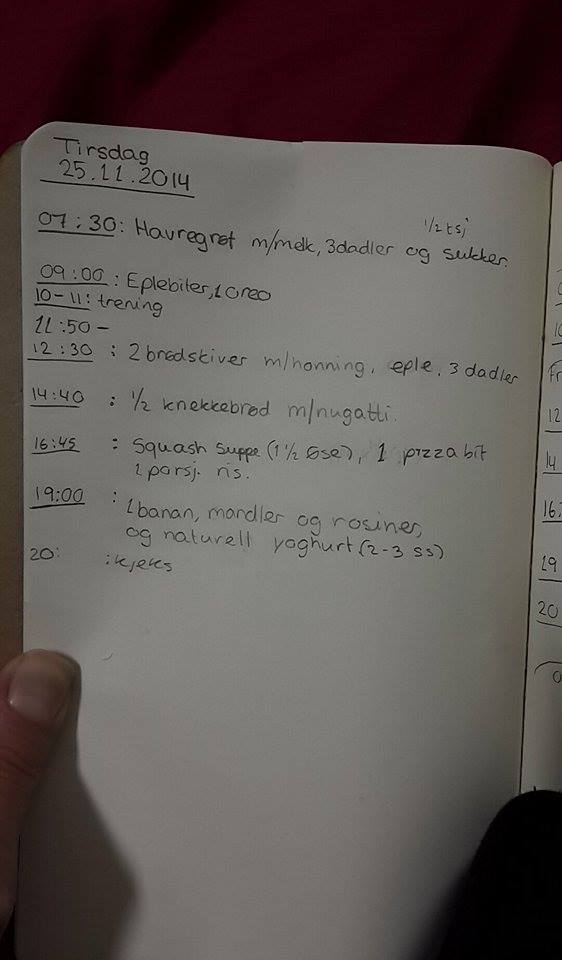 Tirsdag
25.11.2014
1/2 tsj
07:30: Havregrøt m/melk, 3dadler og sukker.
09:00: Eplebiter, 1 oreo
10-11: trening
11:50-
12:30: 2 brødskiver m/honning, eple, 3 dadler
14:40: 1/2 knekkebrød m/nugatti.
16:45: Squash suppe (1 1/2 øse), 1 pizzabit
1 porsj. ris.
19:00:
1 banan, mandler og rosiner,
og naturell yoghurt (2-3 ss)
20: : kjeks
12
14
16:
19
20